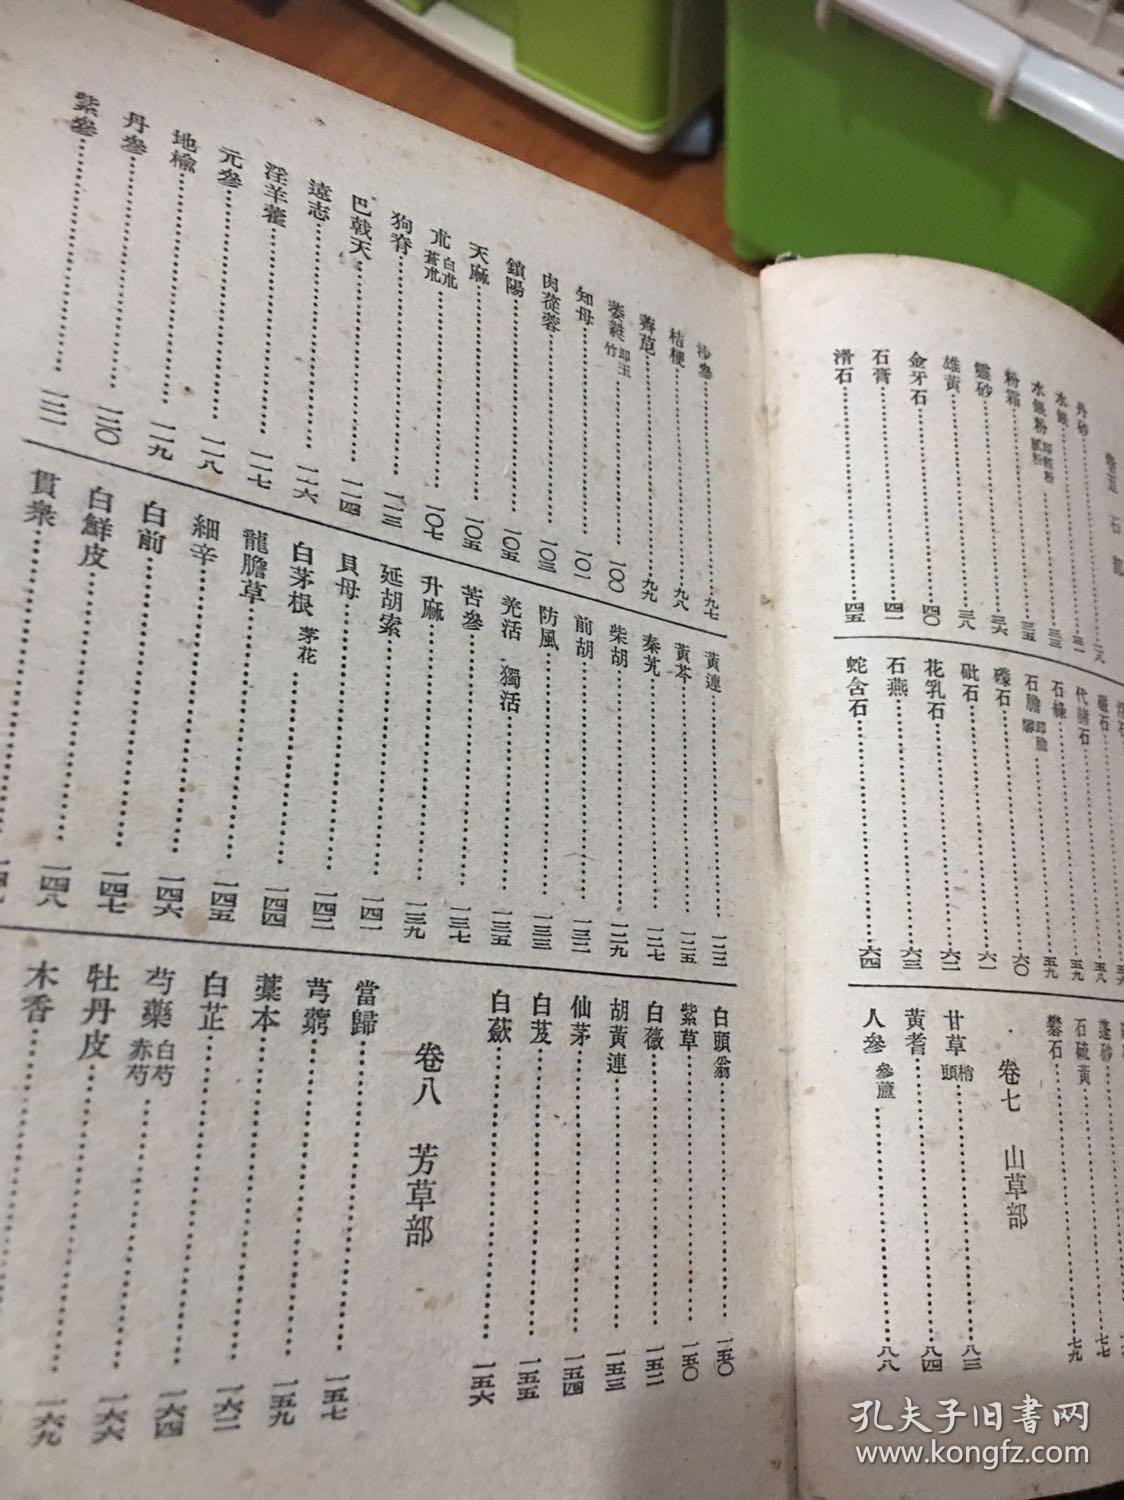 卷五 石部
丹砂 二八
水銀 三一
水銀粉 即輕粉 膩粉 三三
粉霜 三五
靈砂 三六
雄黃 三八
金牙石 四〇
石膏 四一
滑石 四五
磁石 五八
代赭石 五九
石綠 五九
石膽 即膽礬 五九
礞石 六〇
砒石 六一
花乳石 六二
石燕 六三
蛇含石 六四
蓬砂 七七
石硫黃
礬石 七九
卷七 山草部
甘草 梢 頭 八三
黃耆 八四
人參 參蘆 八八
沙參 九七
桔梗 九八
薺苨 九九
萎蕤 即玉竹 一〇〇
知母 一〇一
肉蓯蓉 一〇三
鎖陽 一〇五
天麻 一〇五
朮 白朮 蒼朮 一〇七
狗脊 一一三
巴戟天 一一四
遠志 一一六
淫羊藿 一一七
元參 一一八
地榆 一一九
丹參 一二〇
紫參 一二二
黃連 一二二
黃芩 一二五
秦艽 一二七
柴胡 一二九
前胡 一三二
防風 一三三
羌活 獨活 一三五
苦參 一三七
升麻 一三九
延胡索 一四一
貝母 一四二
白茅根 茅花 一四四
龍膽草 一四五
細辛 一四六
白前 一四七
白鮮皮 一四八
貫衆
白頭翁 一五〇
紫草 一五〇
白薇 一五二
胡黃連 一五三
仙茅 一五四
白芨 一五五
白蘞 一五六
卷八 芳草部
當歸 一五七
芎藭 一五九
藁本 一六二
白芷 一六四
芍藥 白芍 赤芍 一六六
牡丹皮 一六九
木香
孔夫子旧書网
www.kongfz.com